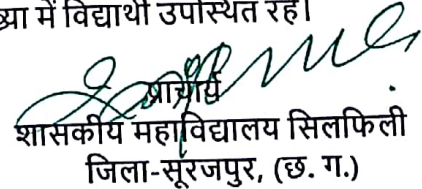 में विद्यार्थी उपस्थित रहे।
प्राचार्य
शासकीय महाविद्यालय सिलफिली
जिला-सूरजपुर, (छ. ग.)